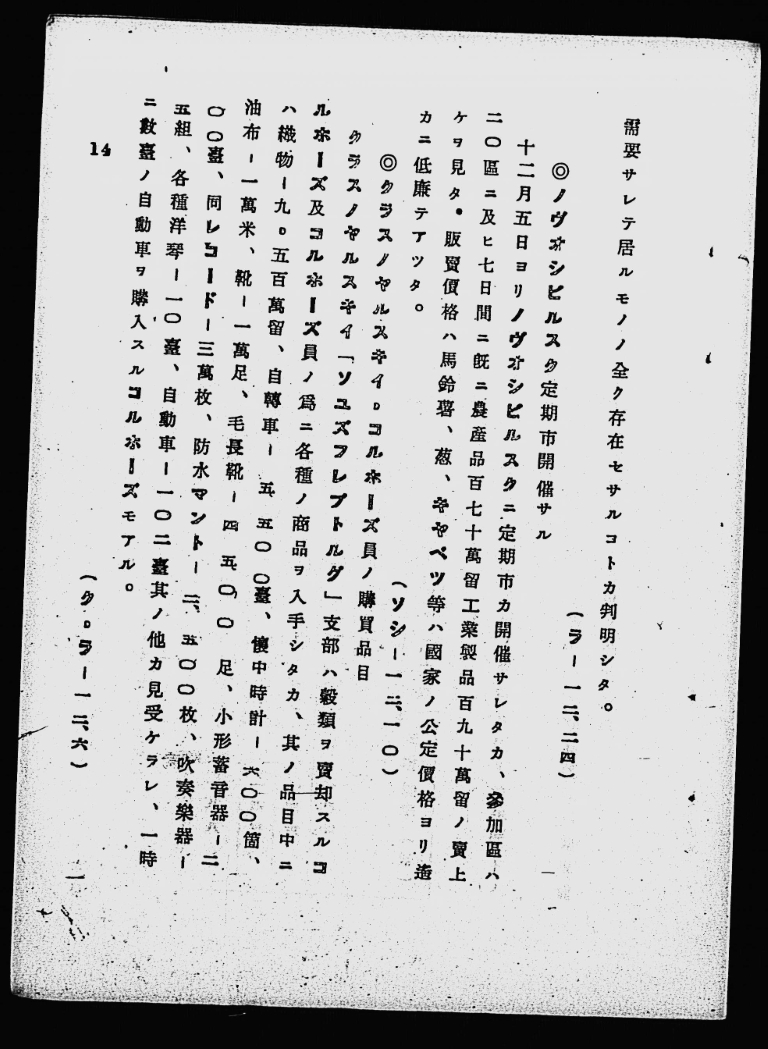 需要サレテ居ルモノノ全ク存在セサルコトカ判明シタ。
(ラー一二、二四)
◎ノヴオシビルスク定期市開催サル
十二月五日ヨリノヴオシビルスクニ定期市カ開催サレタカ、參加區ハ
二〇區ニ及ヒ七日間ニ既ニ農産品百七十萬留工業製品百九十萬留ノ賣上
ケヲ見タ。販賣價格ハ馬鈴薯、葱、キヤベツ等ハ國家ノ公定價格ヨリ遙
カニ低廉テアツタ。
(ソシー一二、一〇)
◎クラスノヤルスキイ。コルホーズ員ノ購買品目
クラスノヤルスキイ「ソユズフレブトルグ」支部ハ穀類ヲ賣却スルコ
ルホーズ及コルホーズ員ノ爲ニ各種ノ商品ヲ入手シタカ、其ノ品目中ニ
ハ織物ー九。五百萬留、自轉車ー五五〇〇臺、懷中時計ー六〇〇箇、
油布ー一萬米、靴ー一萬足、毛長靴ー四五〇〇足、小形蓄音器ー二
〇〇臺、同レコードー三萬枚、防水マントー二、五〇〇枚、吹奏樂器ー
五組、各種洋琴ー一〇臺、自動車ー一〇二臺其ノ他カ見受ケラレ、一時
ニ數臺ノ自動車ヲ購入スルコルホーズモアル。
(ク。ラー一二、六)
14